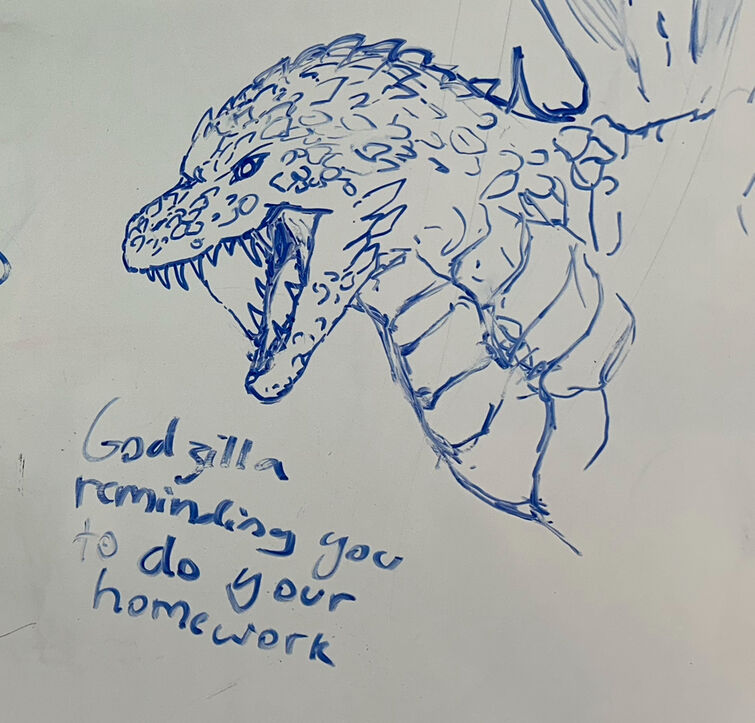 Godzilla
reminding you
to do your
homework